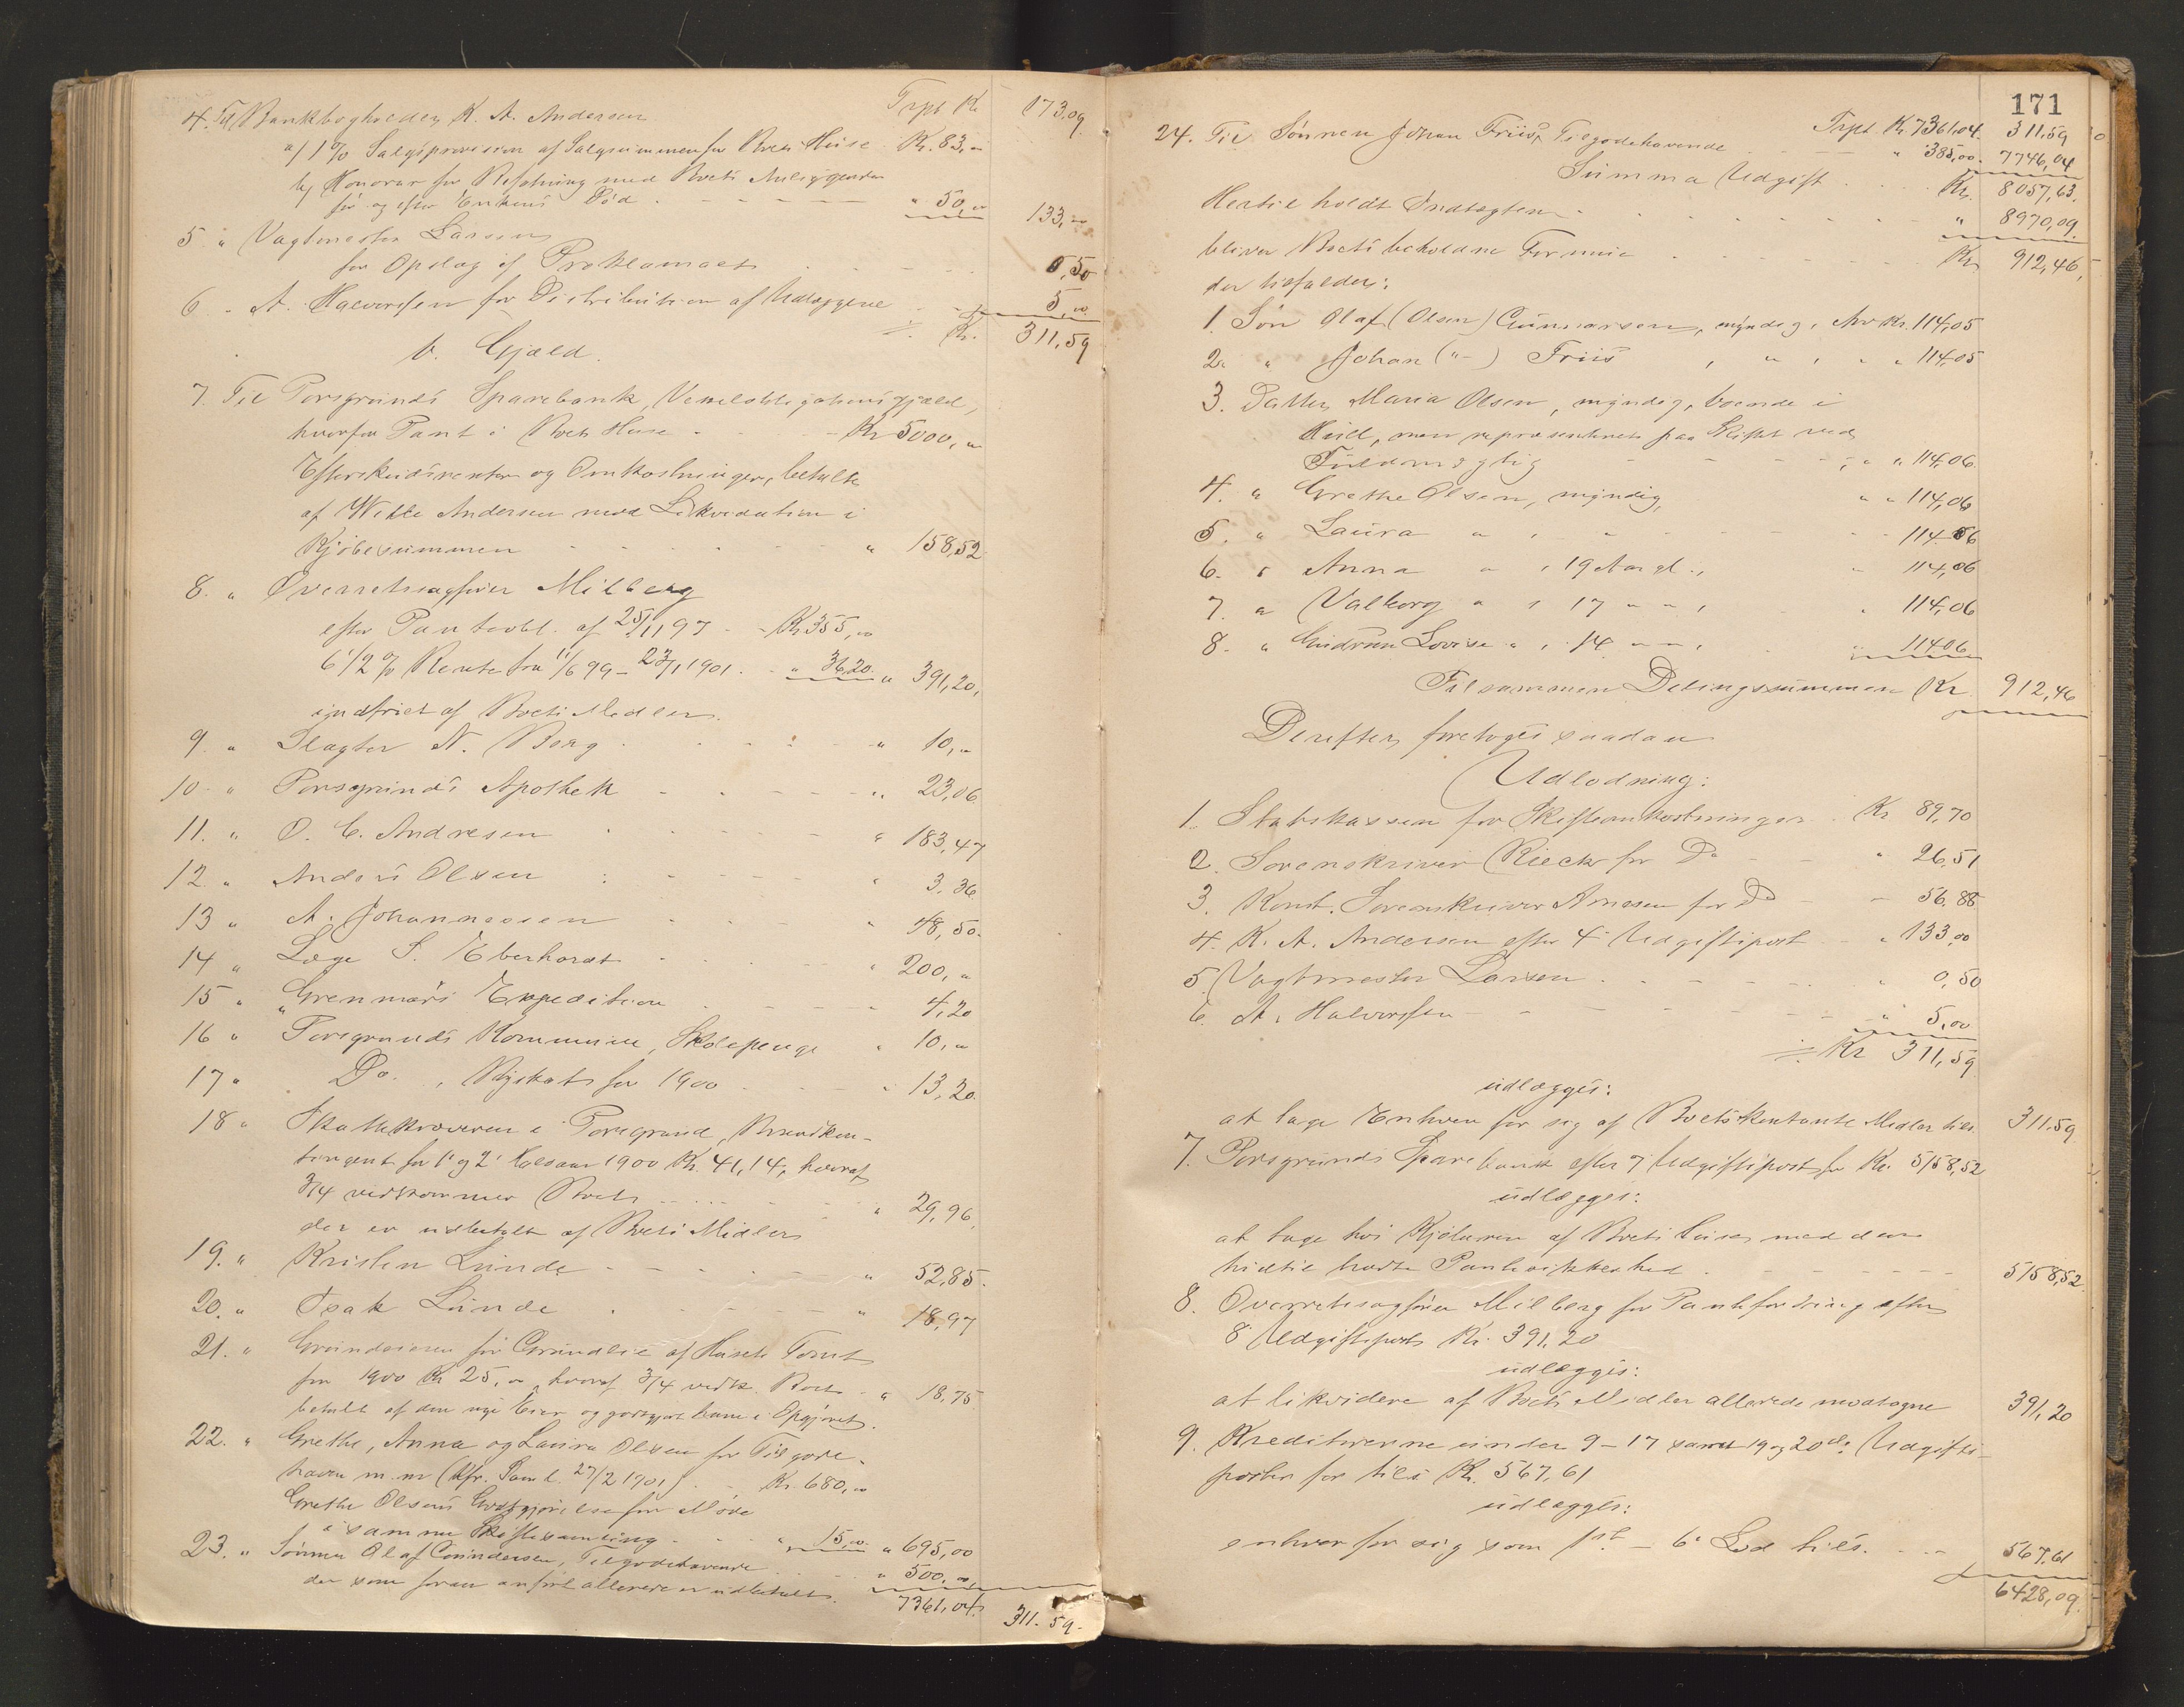 Trpt Kr. 173,09
4. Til Bankbogholder K. A. Andersen
a/ 1 % Salgsprovision af Salgssummen for Boets Huse Kr. 83,00
b/ Honorar for Befatning med Boets Anliggender
før og efter Enkens Død - - - - " 50,00 133,00
5. " Vagtmester Larsen
for Opslag af Proklamaet - - - 0,50
6 " A. Halvorsen for Distribution af Udlæggene - - 5,00
÷ Kr. 311,59
b. Gjæld.
7. Til Porsgrunds Sparebank, Vexelobligationsgjæld,
hvorfor Pant i Boets Huse - - Kr 5000,"
Efterskudsrenter og Omkostninger, betalte
af Wille Andersen mod Likvidation i
Kjøbesummen - - - - " 158,52
8. " Overretssagfører Milberg
efter Pantobl. af 25/11 97 - - Kr 355,00
6 1/2 % Rente fra 11/6 99 - 23/1 1901 - " 36,20 " 391,20,
indfriet af Boets Midler.
9 " Slagter N. Berg - - - - " 10,"
10 " Porsgrunds Apothek - - - - " 23,06
11. " O. C. Andresen - - - - " 183,47
12. " Anders Olsen - - - - " 3,36
13 " A. Johannessen - - - - " 48,50
14 " Læge S. Eberhardt - - - - " 200,"
15 " "Grenmar"s Expedition - - - - " 4,20
16 " Porsgrunds Kommune, Skolepenge " 10,"
17 " Do. , Byskat for 1900 - - " 13,20
18 " Skatteкræveren i Porsgrund, Brandkon-
tingent for 1' og 2' Halvaar 1900 Kr. 41,14, hvoraf
3/4 vedkommer Boet - - - - " 29,96,
der er udbetalt af Boets Midler
19. " Kristen Lunde - - - - " 52,85
20. " Isak Lunde - - - - " 18,97
21. " Grundeieren for Grundleie af Husets Tomt
for 1900 Kr 25,00, hvoraf 3/4 vedk. Boet - " 18,75
betalt af den nye Eier og godtgjort ham i Opgjøret.
22. " Grethe, Anna og Laura Olsen for Tilgode-
havn m. m (Kfr. Saml. 27/2 1901) - - Kr. 680,00
Grethe Olsens Godtgjørelse for Møde
i samme Skiftesamling - - " 15,00 " 695,00
23. " Sønnen Olaf Gundersen, Tilgodehavende - - " 500,00,
der som foran anført allerede er udbetalt.
7361,04 311.59
171
Trpt. Kr. 7361,04. 311,59
24. Til Sønnen Johan Friis's Tilgodehavende - - - " 385,00. 7746,04
Summa Udgift - - - Kr. 8057,63.
Hertil holdt Indtægten - - - - " 8970,09.
bliver Boets beholdne Formue - - - - Kr 912,46,
der tilfalder:
1. Søn Olaf (Olsen) Gunnarsen, myndig, Arv Kr. 114,05
2. " Johan ("-) Friis , " , " " 114,05
3. Datter Maria Olsen, myndig, boende i
Hull, men repræsenteret paa Skiftet ved
Fuldmægtig - - - , " " 114,06
4. " Grethe Olsen, myndig, " " 114,06
5. " Laura " , " - - - " 114,06
6. " Anna " , 19 Aar gl., " 114,06
7. " Valborg " , 17 " " , " 114,06
8. " Gudrun Lovise " , 14 " " , " 114,06
Tilsammen Delingssummen Kr 912,46
Derefter foretoges saadan
Udlodning:
1. Statskassen for Skifteomkostninger Kr 89,70
2. Sorenskriver Rieck for Do - - " 26,51
3. Konst. Sorenskriver Arnesen for Do - - 56.88
4. K. A. Andersen efter 4' Udgiftspost - - " 133,00
5. Vagtmester Larsen - - - - " 0,50
6. A. Halvorsen - - - - " 5,00
÷ Kr 311,59
udlægges:
at tage Enhver for sig af Boets kontante Midler tils. 311.59
7. Porsgrunds Sparebank efter 7' Udgiftspost for Kr. 5158,52
udlægges:
at tage hos Kjøberen af Boets Huse med den
hidtil havte Pantesikkerhed - - - - 5158,52
8. Overretssagfører Milberg for Pantefordring efter
8' Udgiftspost Kr. 391,20
udlægges:
at likvidere af Boets Midler allerede modtagne 391,20
9. Kreditorerne under 9-17 samt 19 og 20de Udgifts-
poster for tils. Kr. 567,61
udlægges:
enhver for sig som 1ste - 6' Lod tils. - - 567,61
6428,09.